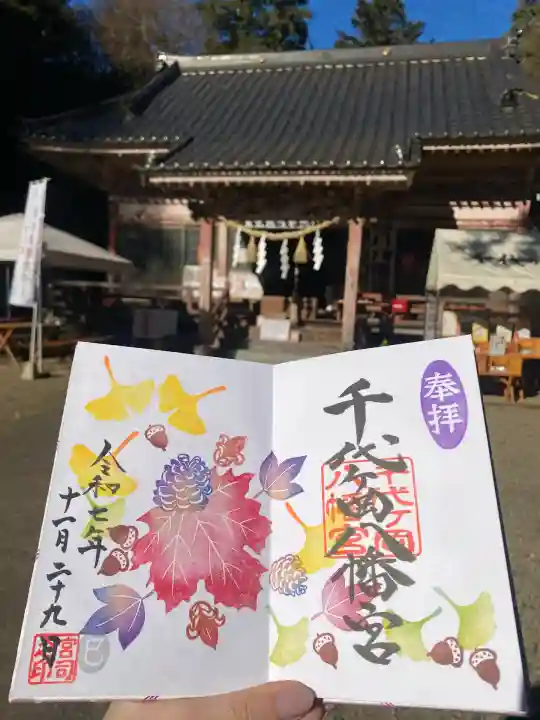 奉拝
千代ケ岡八幡宮
千代ケ岡
八幡宮
令和七年
十一月二十九日
巳